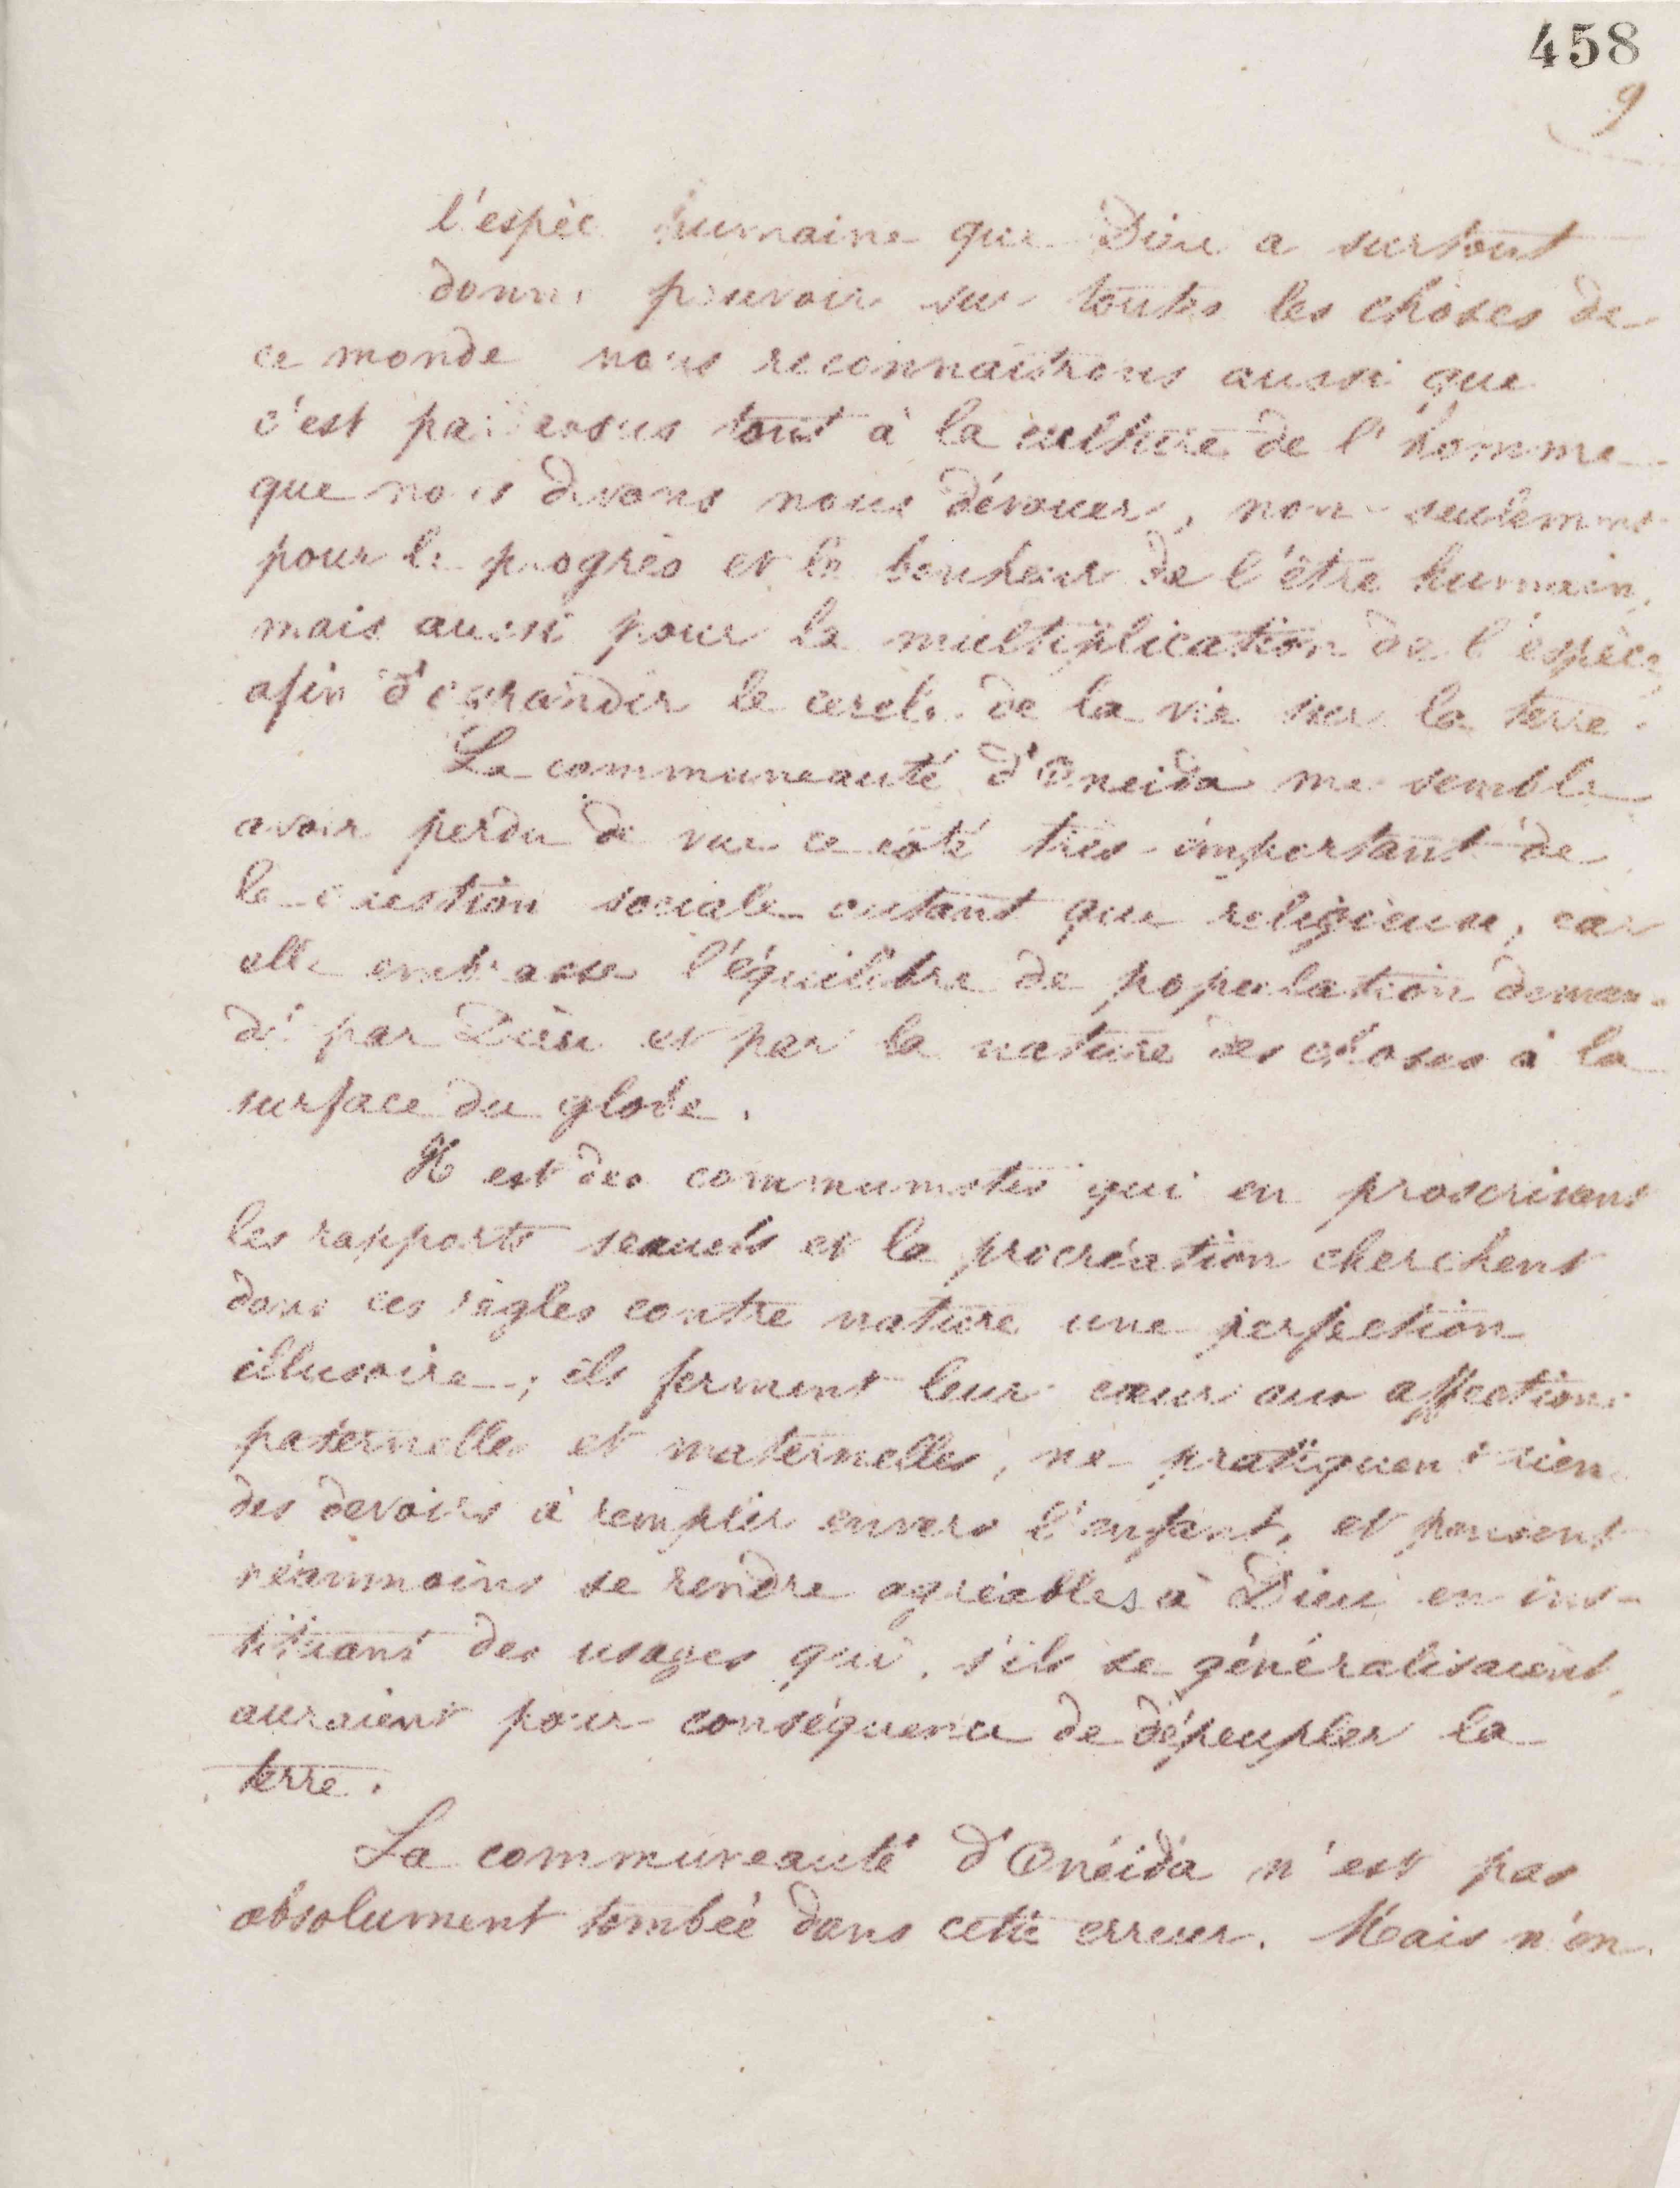 458
9
l'espèce humaine que Dieu a surtout
donné pouvoir sur toutes les choses de
ce monde nous reconnaîtrons aussi que
c'est par dessus tout à la culture de l'homme
que nous devons nous dévouer, non seulement
pour le progrès et le bonheur de l'être humain,
mais aussi pour la multiplication de l'espèce,
afin d'agrandir le cercle de la vie sur la terre.
La communeauté d'Oneida me semble
avoir perdu de vue ce côté très-important de
la question sociale autant que religieuse, car
elle embrasse l'équilibre de population deman-
dé par Dieu et par la nature des choses à la
surface du globe.
Il est des communistes qui en proscrivant
les rapports sexuels et la procréation cherchent
dans ces règles contre nature une perfection
illusoire; ils ferment leur cœur aux affections
paternelles et maternelles, ne pratiquent rien
des devoirs à remplir envers l'enfant, et pensent
néanmoins se rendre agréables à Dieu en ins-
tituant des usages qui, s'ils se généralisaient,
auraient pour conséquence de dépeupler la
terre.
La communeauté d'Onéida n'est pas
absolument tombée dans cette erreur. Mais n'en